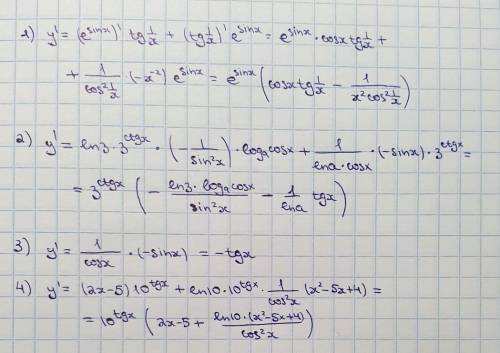 1) y' = (e^sinx)' tg 1/x + (tg 1/x)' e^sinx = e^sinx · cosx tg 1/x +
+ 1/cos² 1/x (-x⁻²) e^sinx = e^sinx (cosx tg 1/x - 1/x² cos² 1/x)
2) y' = ln3 · 3^ctgx · (- 1/sin²x) · logₐcosx + 1/lna·cosx · (-sinx) · 3^ctgx =
= 3^ctgx (- ln3 · logₐcosx/sin²x - 1/lna tgx)
3) y' = 1/cosx · (-sinx) = -tgx
4) y' = (2x-5) 10^tgx + ln10 · 10^tgx · 1/cos²x (x²-5x+4) =
= 10^tgx (2x-5 + ln10·(x²-5x+4)/cos²x)